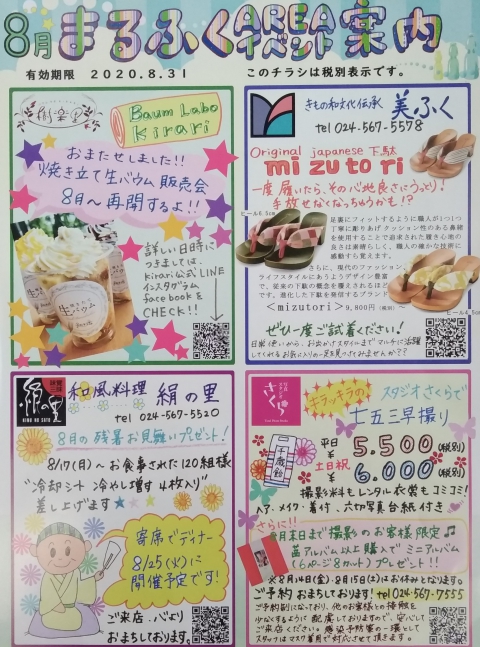 8月 まるふくAREAイベント案内
有効期限 2020.8.31 このチラシは税別表示です。
樹楽里
Baum Labo
Kirari
おまたせしました!!
焼き立て生バウム販売会
8月~再開するよ!!
詳しい日時に
つきましては、
kirari公式LINE
インスタグラム
facebookを
CHECK!!
きもの和文化伝承 美ふく
tel 024-567-5578
Original japanese 下駄
mizutori
一度履いたら、その心地良さにうっとり!
手放せなくなっちゃうかも!?
ヒール6.5cm
足裏にフィットするように職人が1つ1つ
丁寧に創りあげクッション性のある鼻緒
を使用することで追求された履き心地の
良さは素晴らしく、職人の確かな技術に
感動すら覚えます。
さらに、現代のファッション、
ライフスタイルにあうようデザイン豊富
で、従来の下駄の概念を覆されるほど
です。進化した下駄を発信するブランド
<mizutori> 9,800円(税別)~
ヒール4.5cm
ぜひ一度ご試着ください!
日常使いから、お出かけスタイルまでマルチに活躍
してくれるお気に入りの一足を見つけてみませんか??
絹の里
KINU NO SATO
和風料理 絹の里
tel 024-567-5520
8月の残暑お見舞いプレゼント!
8/17(月)~お食事された120組様
"冷却シート冷やし増す4枚入り"
差し上げます
寄席でディナー
8/25(火)に
開催予定です!
ご来店、心より
おまちしております。
さくら
キラッキラの
スタジオさくらで
七五三早撮り
千歳飴
平日 ¥5.500(税別)
土日祝 ¥6.000(税別)
撮影料もレンタル衣裳もコミコミ!
ヘア・メイク・着付、六切写真台紙付き
さらに!!
8月末日まで撮影のお客様限定♫
苗アルバム以上購入でミニアルバム
(6ページ8カット)プレゼント!!
※8月14日(金)・8月15日(土)はお休みとなります。
ご予約おまちしております! tel 024-567-7555
ご予約制になっており、他のお客様との接触を
少なくするように配慮しておりますので、安心して
ご来店ください。感染予防策の一環として
スタッフはマスク着用で対応させて頂きます。